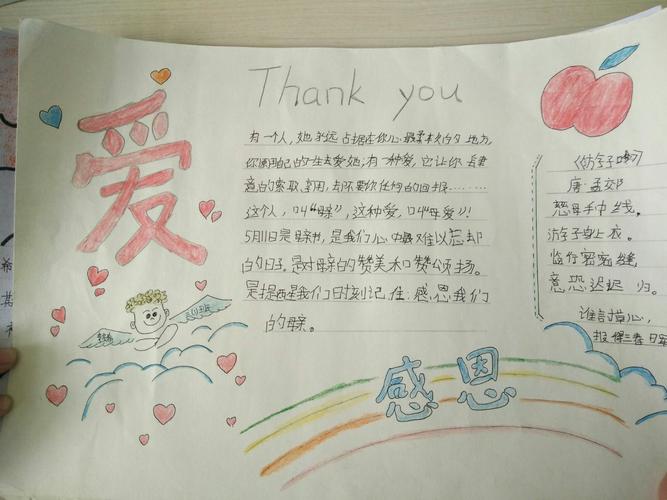 爱
Thank you
有一个人，她永远占据在你心最柔软的地方，
你愿用自己的一生去爱她；有一种爱，它让你肆
意的索取、享用，却不要你任何的回报……
这个人，叫“母亲”，这种爱，叫“母爱”！
5月11日是母亲节，是我们心中最难以忘却
的的日子，是对母亲的赞美和赞颂扬。
是提醒是我们时刻记住：感恩我们
的母亲。
感恩
《游子吟》
唐·孟郊
慈母手中线，
游子身上衣。
临行密密缝，
意恐迟迟归。
谁言寸草心，
报得三春日军